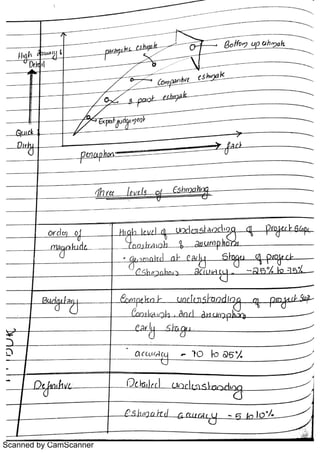 High Accuracy &
Detail
parametric estimate
Bottom up estimate
Comparitive estimate
3 point estimate
Expert judgement
Quick
Dirty
perception
fact
Three levels of Estimating
order of
magnitude
High level of understanding of project Scope
Constraints & assumptions
• generated at early stage of project
Estimation accuracy - -25% to 75%
Budgetary
Competent understanding of project Scop
Constraints and assumptions
early stage
accuracy - 10 to 25%
Definitive
Detailed understanding
Estimated accuracy - 5 to 10%
Scanned by CamScanner